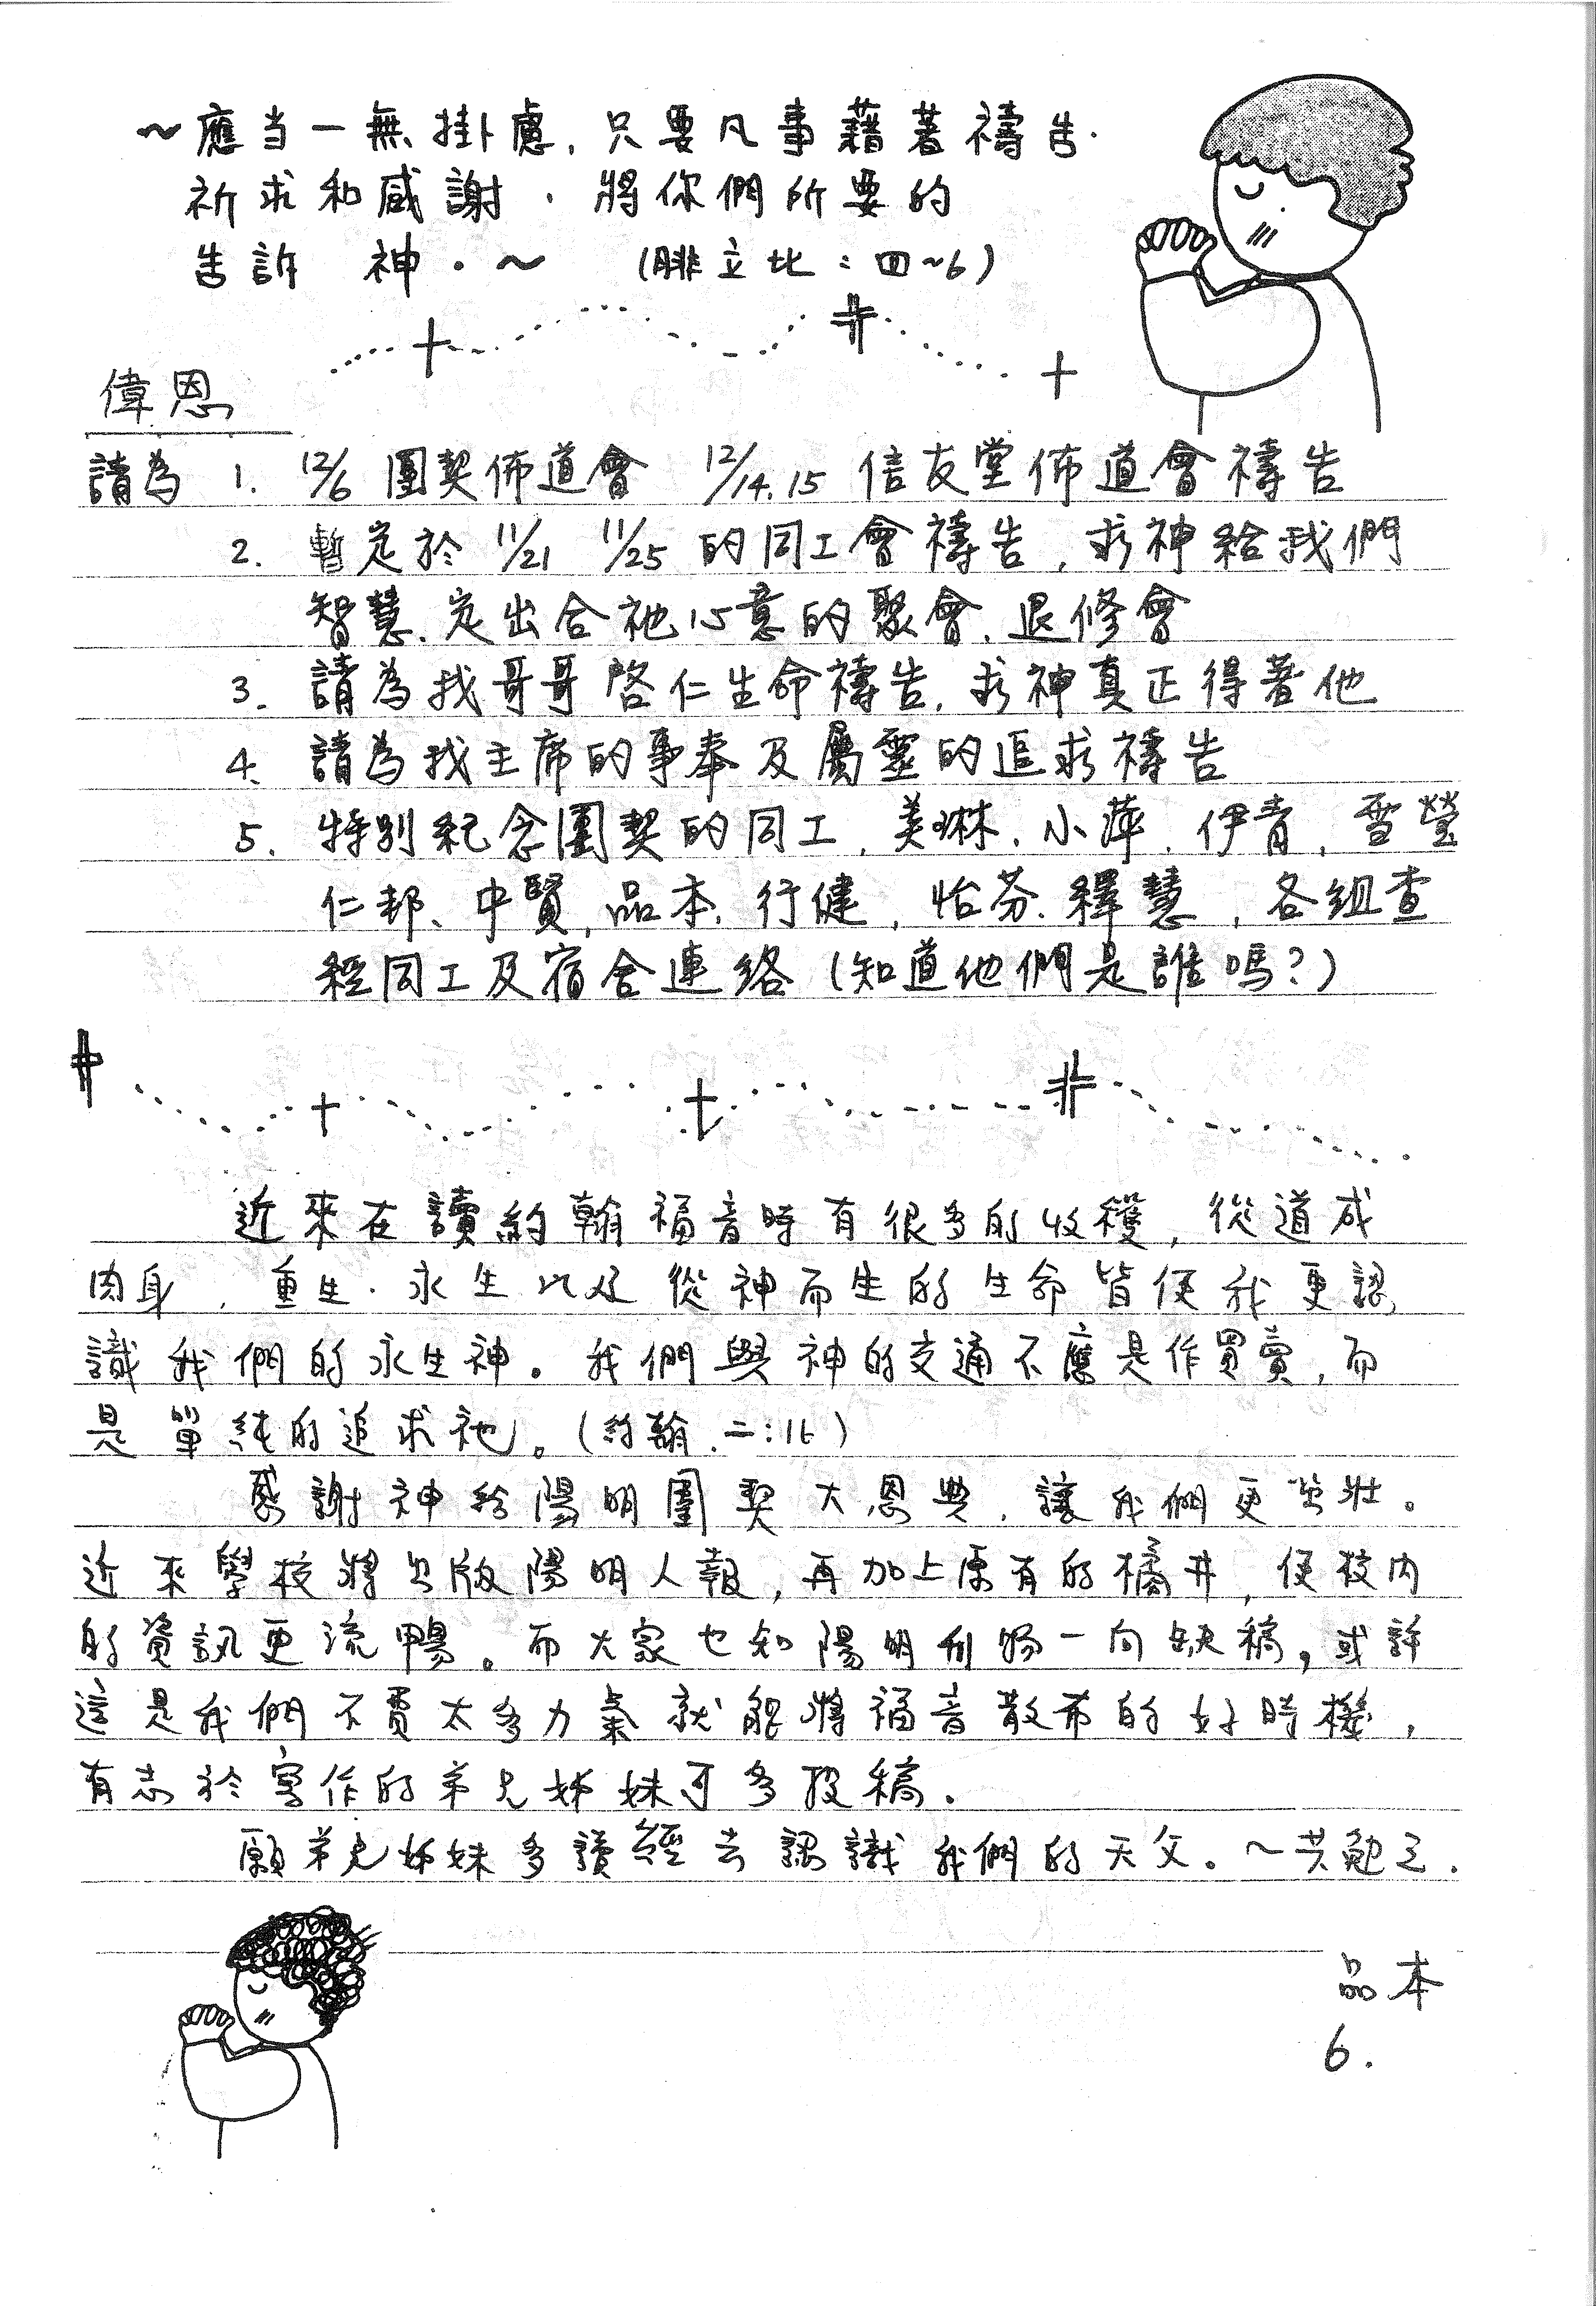 ～應当一無掛慮，只要凡事藉著禱告．
祈求和感謝．將你們所要的
告訴 神．～ (腓立比：四～6)
偉恩
請為 1. 12/6 團契佈道會 12/14.15 信友堂佈道會禱告
2. 暫定於 11/21 11/25 的同工會禱告，求神給我們
智慧、定出合祂心意的聚會、退修會
3. 請為我哥哥啓仁生命禱告，求神真正得著他
4. 請為我主席的事奉及屬靈的追求禱告
5. 特別紀念團契的同工，美琳、小萍、伊青，雪瑩
仁邦、中賢，品本，行健，怡芬、繹慧，各組查
經同工及宿舍連絡(知道他們是誰嗎？)
近來在讀約翰福音時有很多的收穫，從道成
肉身，重生．永生以及從神而生的生命皆使我更認
識我們的永生神。我們與神的交通不應是作買賣，而
是單純的追求祂。(約翰．二：16)
感謝神給陽明團契大恩典，讓我們更茁壯。
近來學校將出版陽明人報，再加上原有的橘井，使校內
的資訊更流暢。而大家也知陽明刊物一向缺稿，或許
這是我們不費太多力氣就能將福音散佈的好時機，
有志於寫作的弟兄姊妹可多投稿．
願弟兄姊妹多讀經去認識我們的天父。～共勉之．
品本
6.